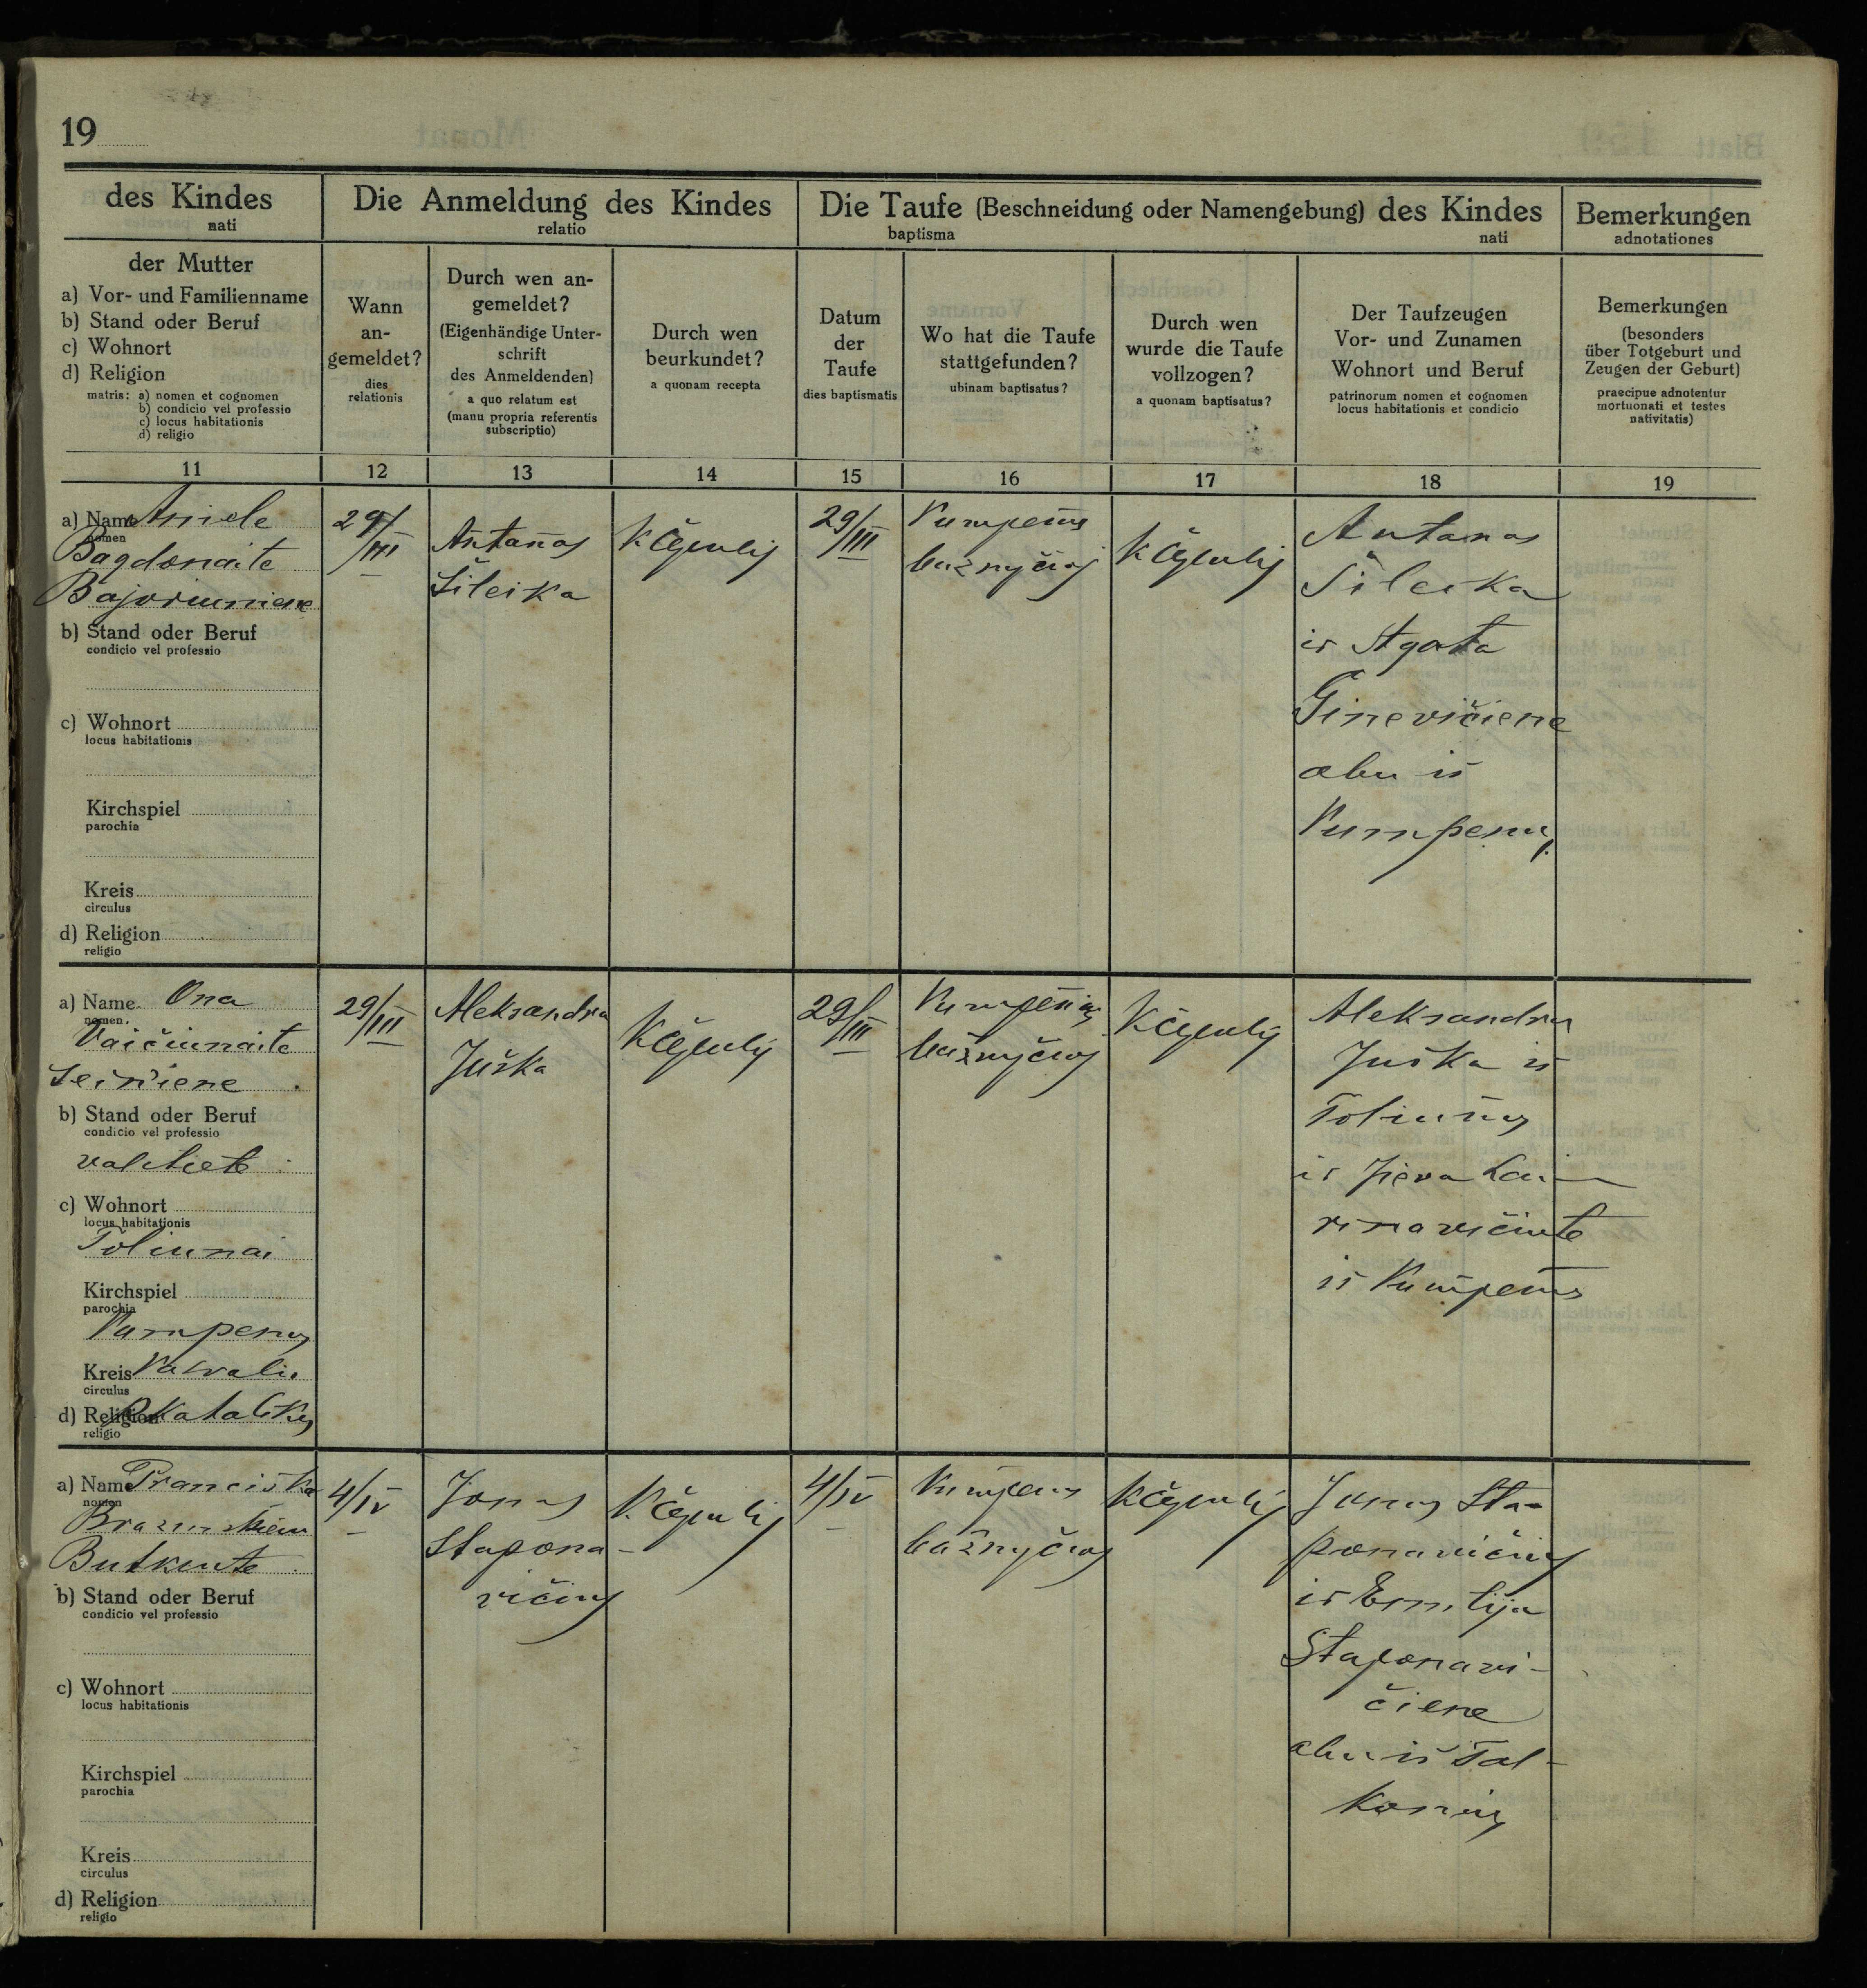 19
des Kindes
nati
Die Anmeldung des Kindes
relatio
Die Taufe (Beschneidung oder Namengebung) des Kindes
baptisma nati
Bemerkungen
adnotationes
der Mutter
a) Vor- und Familienname
b) Stand oder Beruf
c) Wohnort
d) Religion
matris: a) nomen et cognomen
b) condicio vel professio
c) locus habitationis
d) religio
Wann
an-
gemeldet?
dies
relationis
Durch wen an-
gemeldet?
(Eigenhändige Unter-
schrift
des Anmeldenden)
a quo relatum est
(manu propria referentis
subscriptio)
Durch wen
beurkundet?
a quonam recepta
Datum
der
Taufe
dies baptismatis
Wo hat die Taufe
stattgefunden?
ubinam baptisatus?
Durch wen
wurde die Taufe
vollzogen?
a quonam baptisatus?
Der Taufzeugen
Vor- und Zunamen
Wohnort und Beruf
patrinorum nomen et cognomen
locus habitationis et condicio
Bemerkungen
(besonders
über Totgeburt und
Zeugen der Geburt)
praecipue adnotentur
mortuonati et testes
nativitatis)
11 12 13 14 15 16 17 18 19
a) Name Aniele
nomen
Bagdonaite
Bajoriuniene
b) Stand oder Beruf
condicio vel professio
c) Wohnort
locus habitationis
Kirchspiel
parochia
Kreis
circulus
d) Religion
religio
29/III
Antanas
Šileika
29/III
bažnyčioj
Antanas
Šileika
ir Agota
Ginevičiene
abu iš
Pumpenų
a) Name Ona
nomen
Vaičiunaite
b) Stand oder Beruf
condicio vel professio
valstiete
c) Wohnort
locus habitationis
Toliunai
Kirchspiel
parochia
Pumpenų
Kreis
circulus
d) Religion
religio
29/III
Aleksandra
Juška
29/III
bažnyčioj
Aleksandra
Juška iš
Toliunų
ir Jieva Lau-
rinavičiute
iš Pumpenų
a) Name Pranciška
nomen
Butkute
b) Stand oder Beruf
condicio vel professio
c) Wohnort
locus habitationis
Kirchspiel
parochia
Kreis
circulus
d) Religion
religio
4/IV
Jonas
Stapona-
vičius
4/IV
bažnyčioj
Jonas Sta-
ponavičius
ir Emilija
Staponavi-
čiene
abu iš Tal-
konių